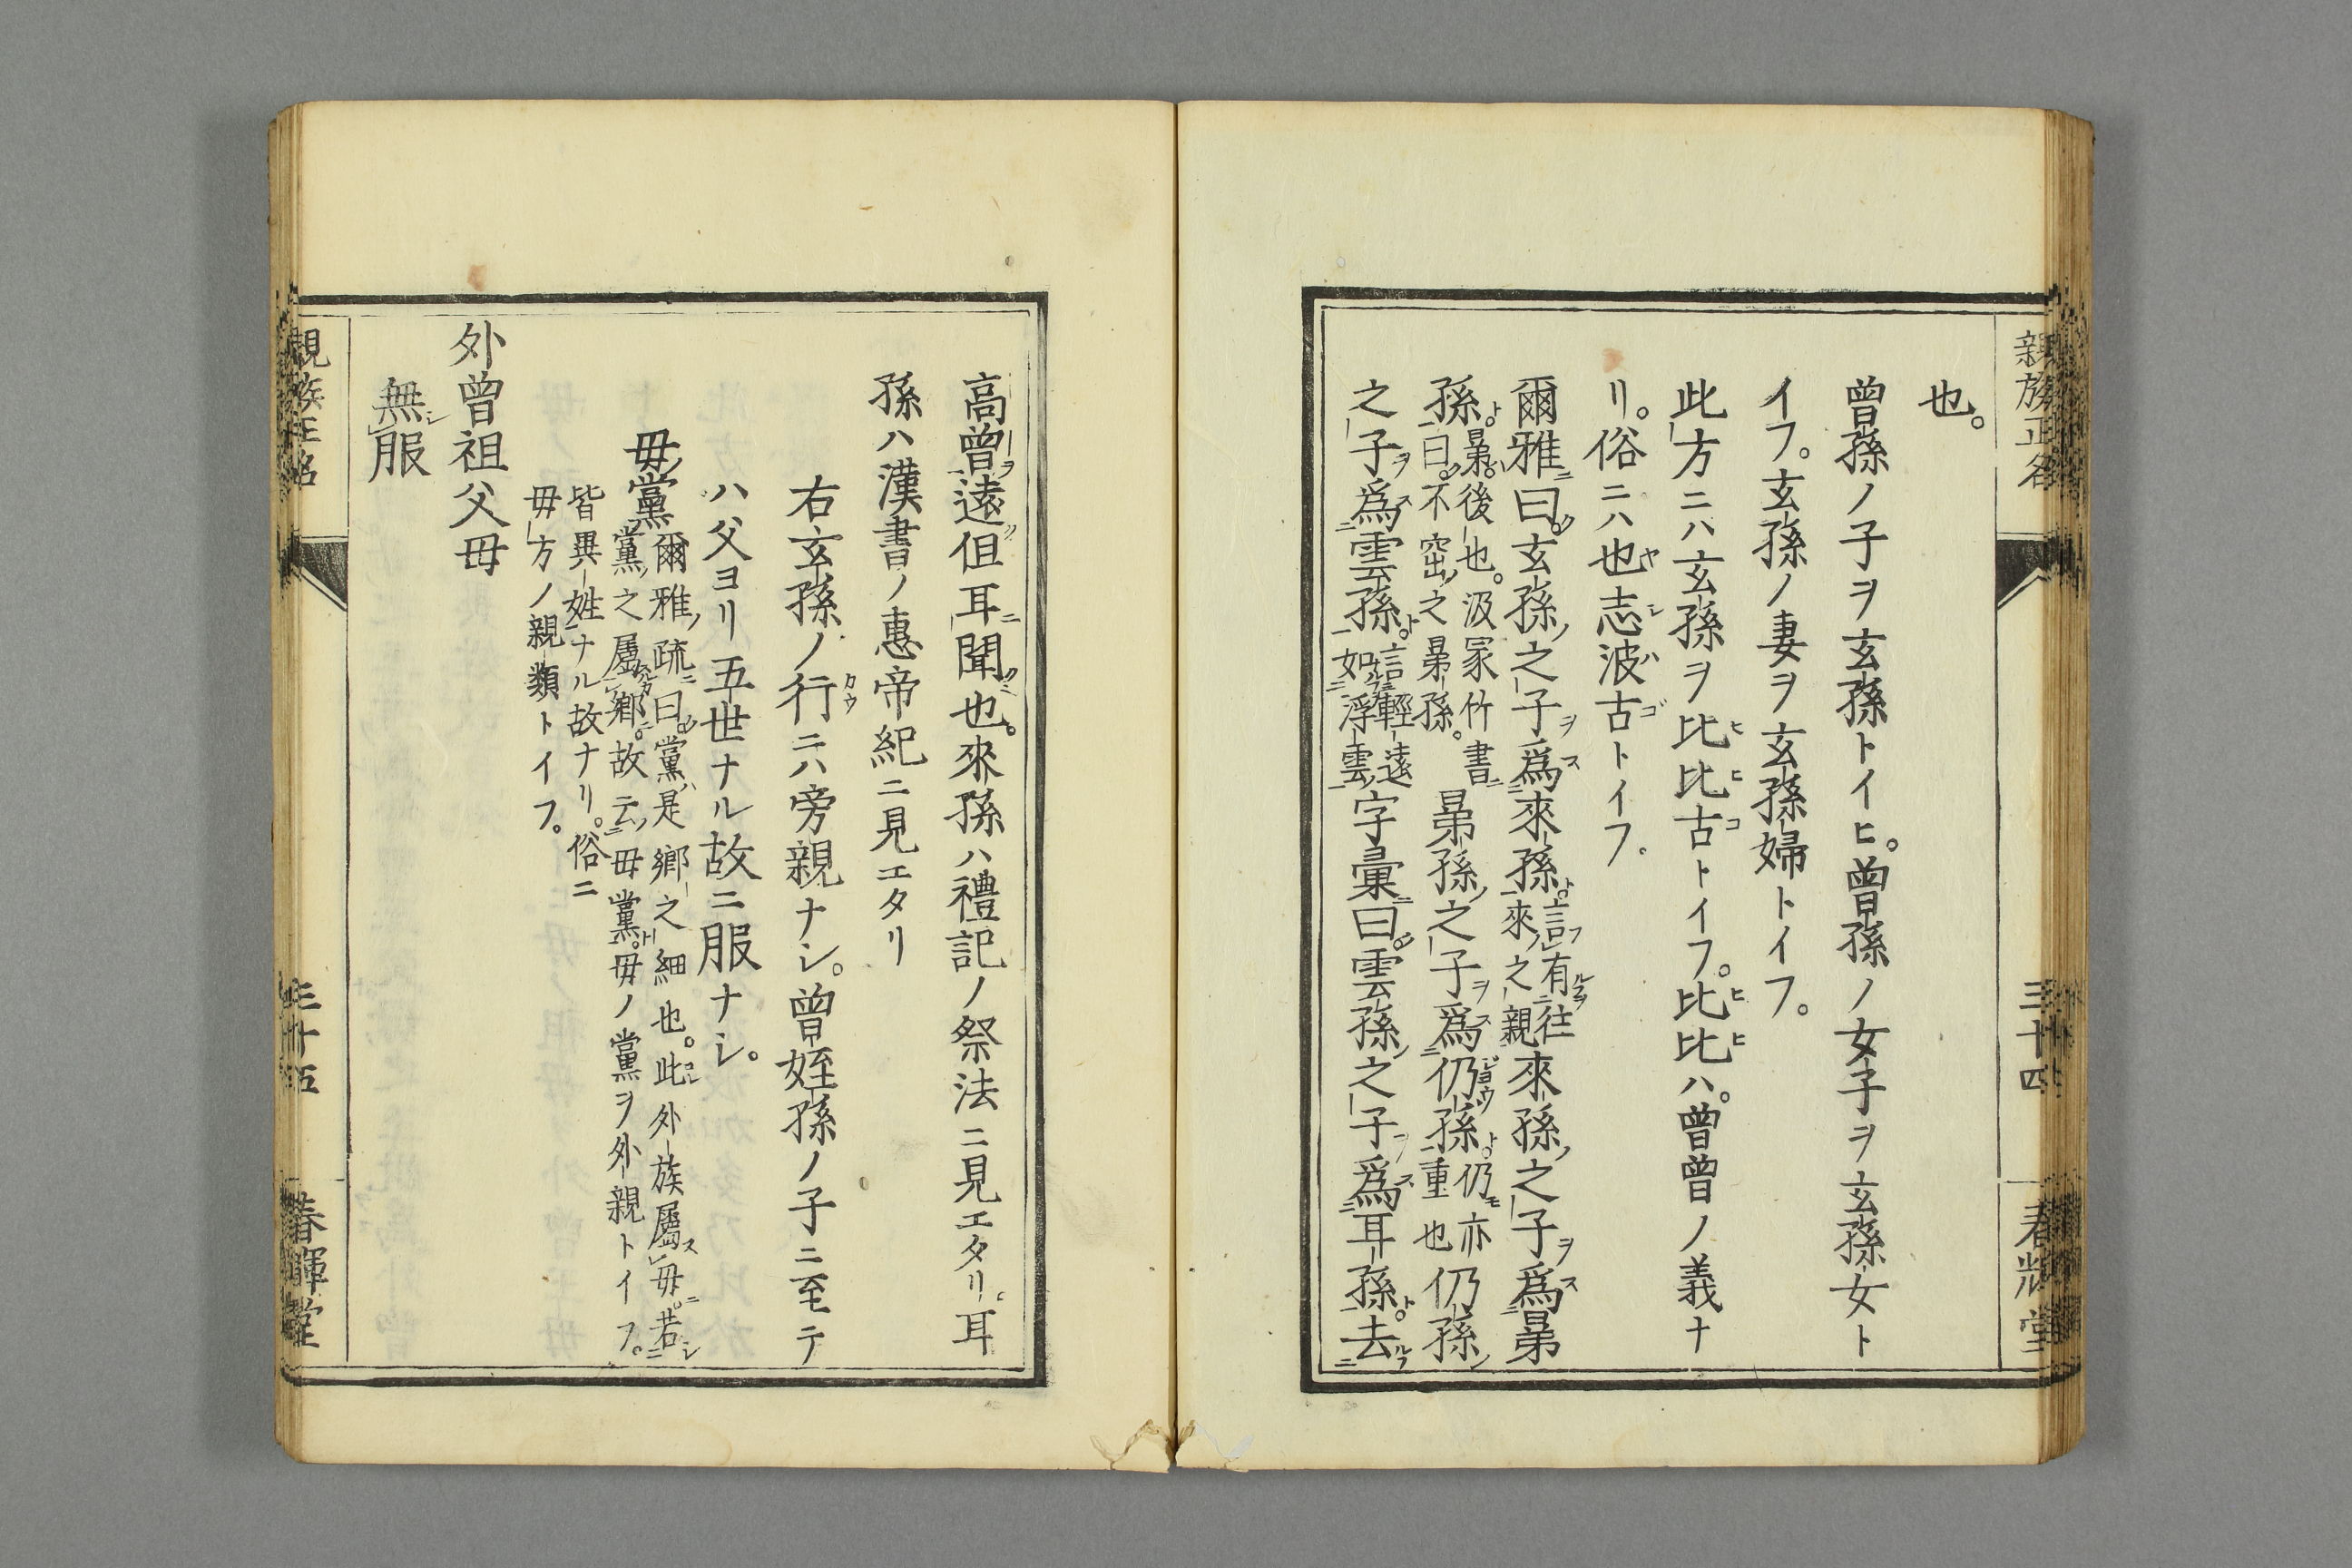 親族正名
三十四
春暉堂
也。
曾孫ノ子ヲ玄孫トイヒ。曾孫ノ女子ヲ玄孫女ト
イフ。玄孫ノ妻ヲ玄孫婦トイフ。
此方ニハ玄孫ヲ比比古トイフ。比比ハ。曾曾ノ義ナ
リ。俗ニハ也志波古トイフ。
爾雅曰。玄孫之子爲來孫。言有往
來之親
來孫之子爲晜
孫。晜。後也。汲冢竹書
曰。不窋之晜孫。
晜孫之子爲仍孫。仍亦
重也
仍孫
之子爲雲孫。言輕遠
如浮雲
字彙曰。雲孫之子爲耳孫。去
高曾遠但耳聞也。來孫ハ禮記ノ祭法ニ見エタリ。耳
孫ハ漢書ノ惠帝紀ニ見エタリ
右玄孫ノ行ニハ旁親ナシ。曾姪孫ノ子ニ至テ
ハ父ヨリ五世ナル故ニ服ナシ。
毋黨
爾雅疏曰。黨是鄉之細也。此外族屬毋。若
黨之屬鄉。故云毋黨。毋ノ黨ヲ外親トイフ。
皆異姓ナル故ナリ。俗ニ
毋方ノ親類トイフ。
外曾祖父毋
無服
親族正名
三十五
春暉堂